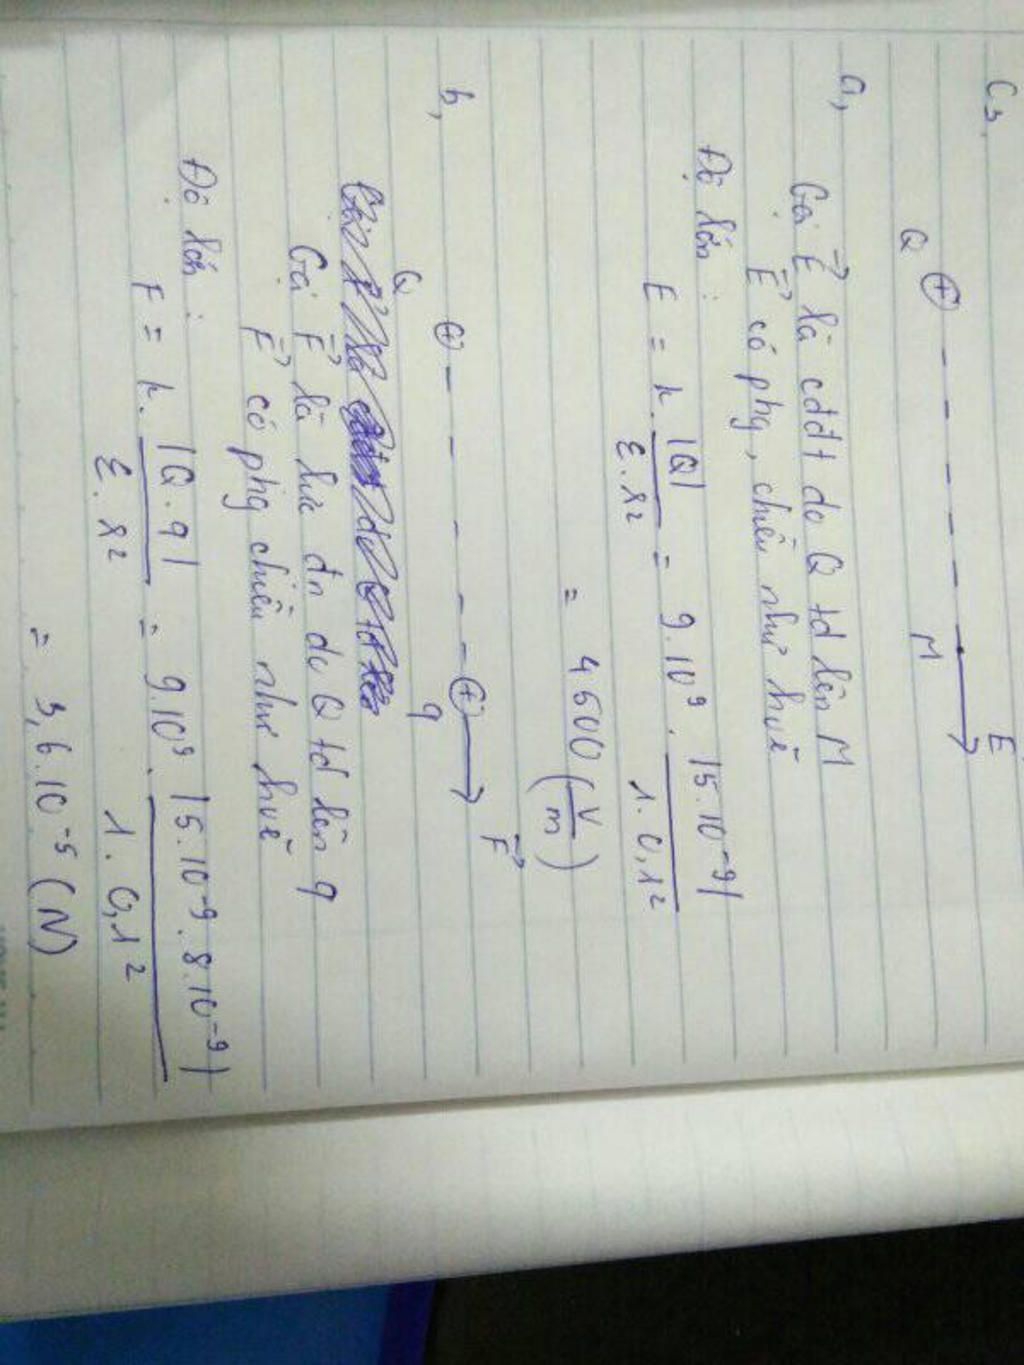 C3.
Q (+) M E
a, Gọi E→ là cđđt do Q td lên M
E→ có phg, chiều như hvẽ
Độ lớn :
E = k. |Q| / ε.r² = 9.10⁹ . |5.10⁻⁹| / 1.0,1²
= 4500 (V/m)
b, Q (+) (+) q F→
Gọi F→ là lực đn do Q td lên q
F→ có phg chiều như hvẽ
Độ lớn :
F = k. |Q.q| / ε.r² = 9.10⁹ . |5.10⁻⁹.8.10⁻⁹| / 1.0,1²
= 3,6.10⁻⁵ (N)